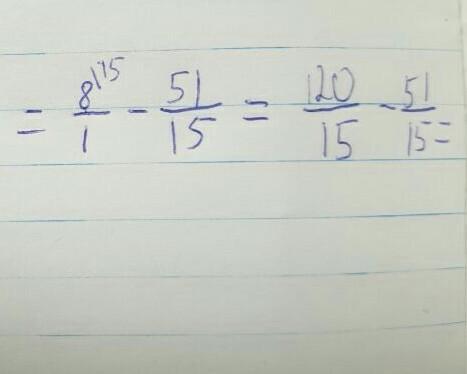 = 8\15/1 - 51/15 = 120/15 - 51/15 =